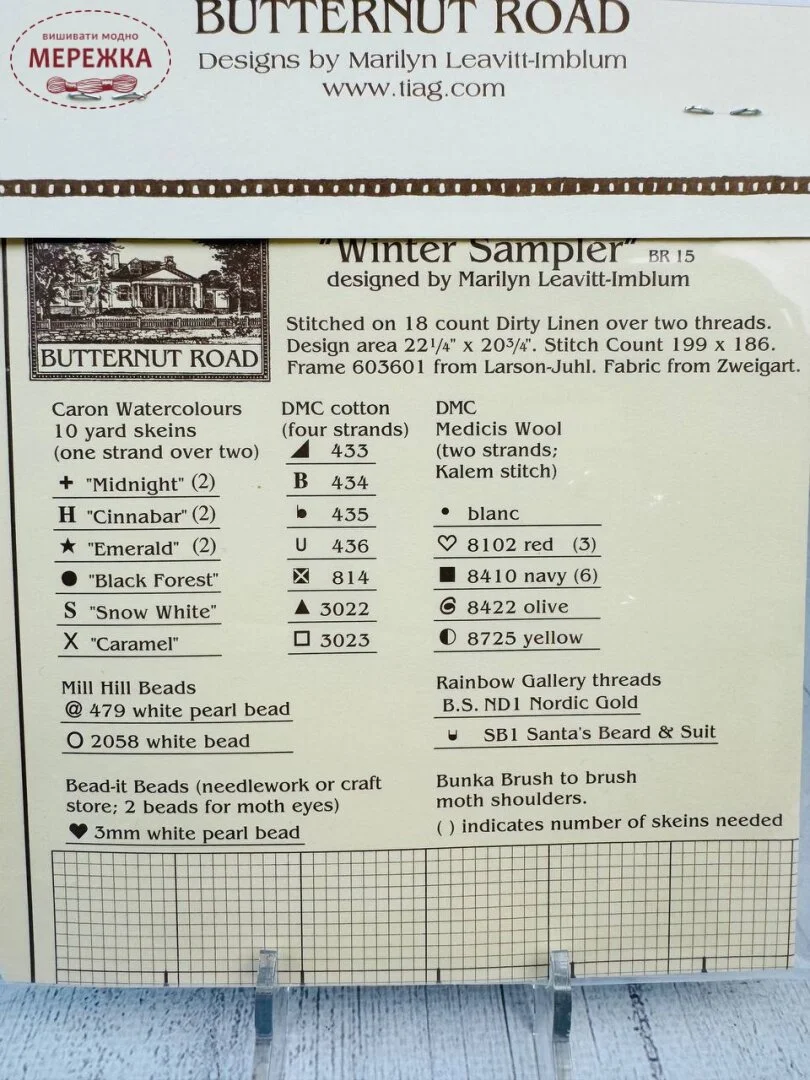 BUTTERNUT ROAD
Designs by Marilyn Leavitt-Imblum
www.tiag.com
вишивати модно
МЕРЕЖКА
"Winter Sampler" BR 15
designed by Marilyn Leavitt-Imblum
BUTTERNUT ROAD
Stitched on 18 count Dirty Linen over two threads.
Design area 22 1/4" x 20 3/4". Stitch Count 199 x 186.
Frame 603601 from Larson-Juhl. Fabric from Zweigart.
Caron Watercolours
10 yard skeins
(one strand over two)
+ "Midnight" (2)
H "Cinnabar" (2)
★ "Emerald" (2)
● "Black Forest"
S "Snow White"
X "Caramel"
DMC cotton
(four strands)
◢ 433
B 434
435
U 436
814
▲ 3022
□ 3023
DMC
Medicis Wool
(two strands;
Kalem stitch)
• blanc
♡ 8102 red (3)
■ 8410 navy (6)
8422 olive
◐ 8725 yellow
Mill Hill Beads
@ 479 white pearl bead
O 2058 white bead
Rainbow Gallery threads
B.S. ND1 Nordic Gold
SB1 Santa's Beard & Suit
Bead-it Beads (needlework or craft
store; 2 beads for moth eyes)
♥ 3mm white pearl bead
Bunka Brush to brush
moth shoulders.
( ) indicates number of skeins needed